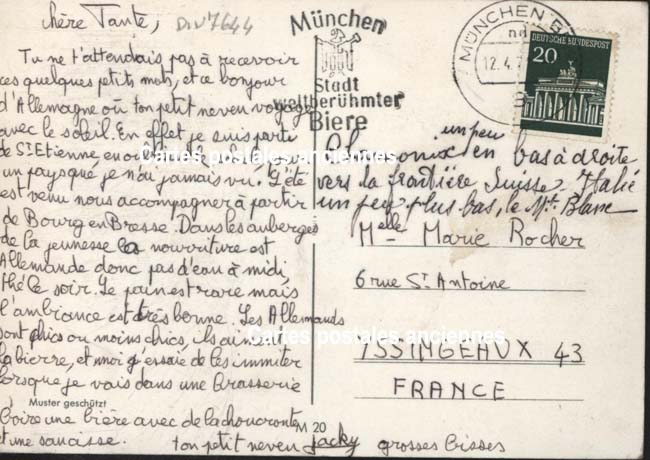 chère Tante,
DIV7644
Tu ne t'attendais pas à recevoir
ces quelques petits mots, et ce bonjour
d'Allemagne où ton petit neveu voyage
avec le soleil. En effet je suis parti
de St Etienne,
un pays que je n'ai jamais vu. L'été
est venu nous accompagner à partir
de Bourg en Bresse. Dans les auberges
de la jeunesse la nourriture est
Allemande donc pas d'eau à midi,
thé le soir. Le pain est rare mais
l'ambiance est très bonne. Les Allemands
sont chics ou moins chics, ils aiment
la bierre, et moi j'essaie de les immiter
lorsque je vais dans une brasserie
Muster geschützt
boire une bière avec de la choucroute
et une saucisse.
ton petit neveu Jacky grosses bisses
M 20
München
Stadt
weltberühmter
Biere
MÜNCHEN
12.4.7
DEUTSCHE BUNDESPOST
20
un peu
Chamonix en bas à droite
vers la frontière Suisse-Italie
un peu plus bas, le Mt. Blanc
Melle Marie Rocher
6 rue St Antoine
YSSINGEAUX 43
FRANCE
Cartes postales anciennes
Cartes postales anciennes